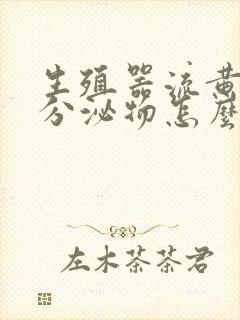 生殖器流黄
分泌物怎麼
左木茶茶君